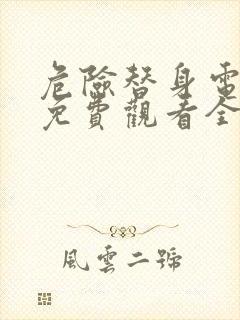 危險替身電
免費觀看全
風雲二號